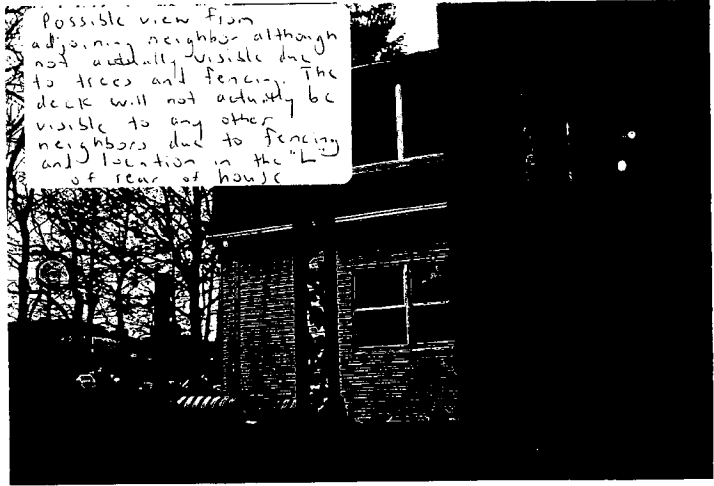 Possible view from
adjoining neighbor although
not actually visible due
to trees and fencing. The
deck will not actually be
visible to any other
neighbors due to fencing
and location in the "L"
of rear of house